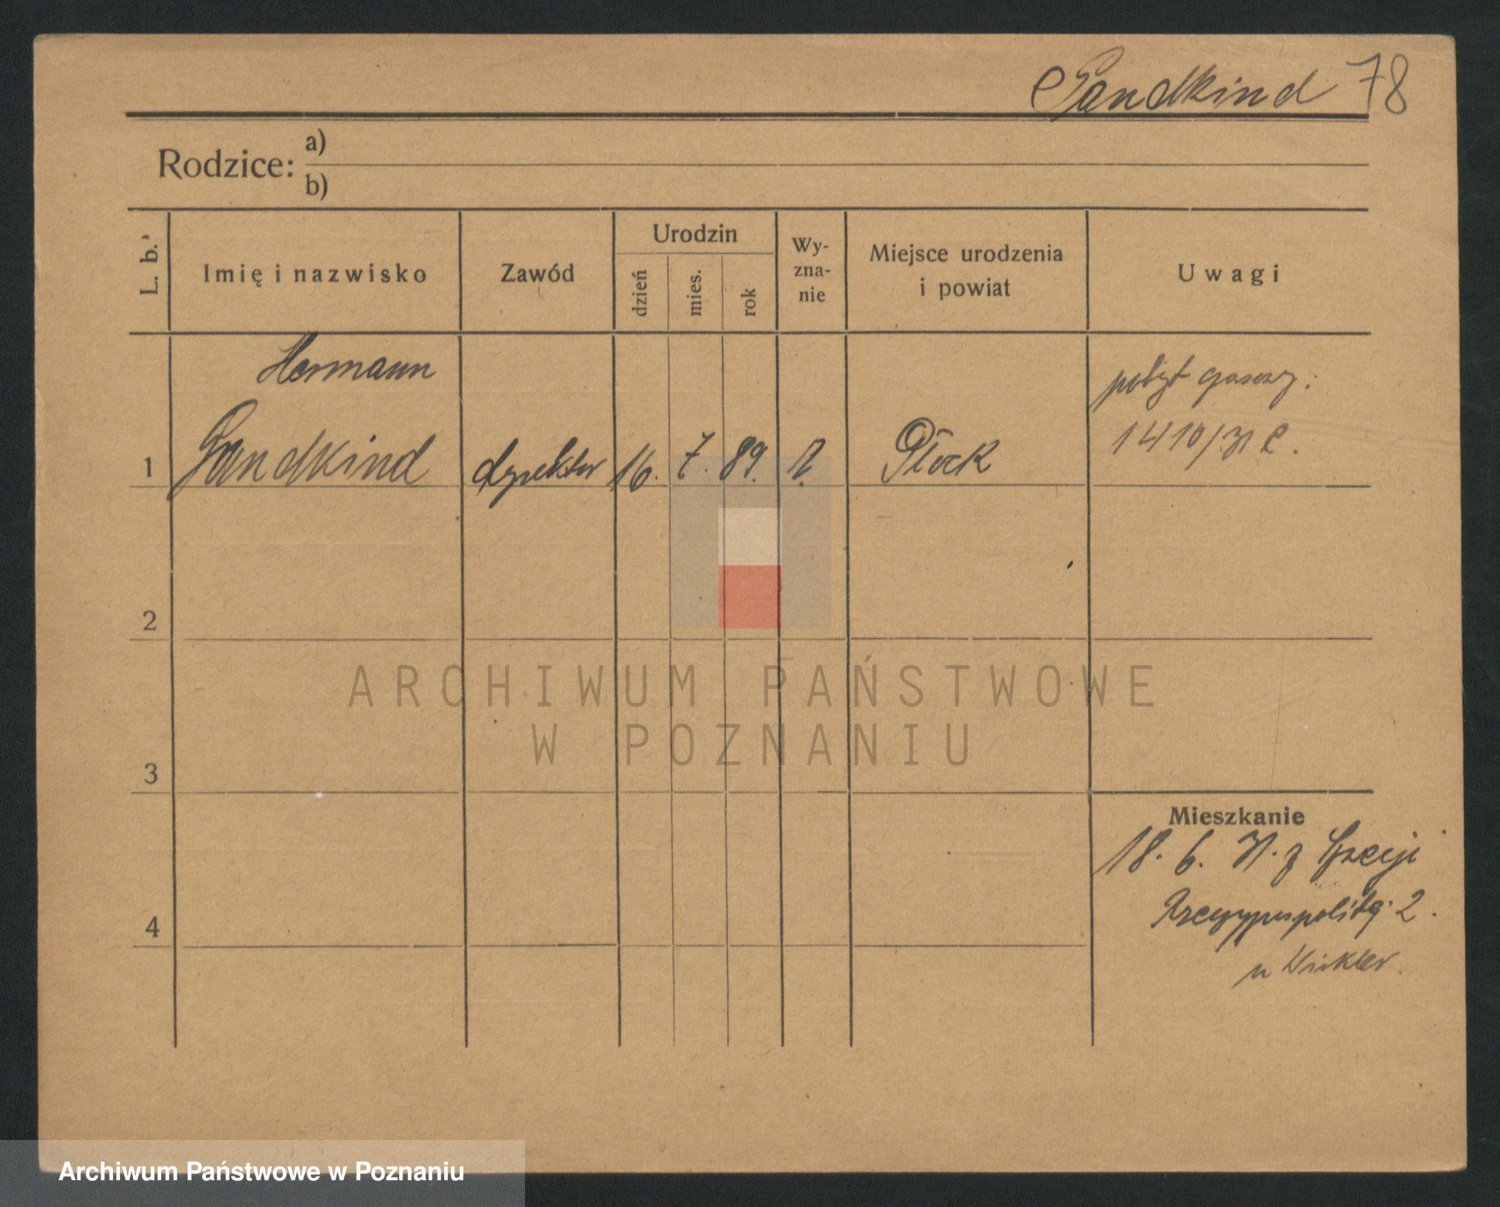 Sandkind 78
Rodzice: a)
b)
L. b.
Imię i nazwisko
Zawód
Urodzin
dzień
mies.
rok
Wy-
zna-
nie
Miejsce urodzenia
i powiat
Uwagi
Hermann
1 Sandkind dyrektor 16. 7. 89. Płock
pobyt czasowy:
1410/31
2
3
4
Mieszkanie
18. 6. 31. z
Rzeczypospolitej 2.
u Winkler.
ARCHIWUM PAŃSTWOWE
W POZNANIU
Archiwum Państwowe w Poznaniu